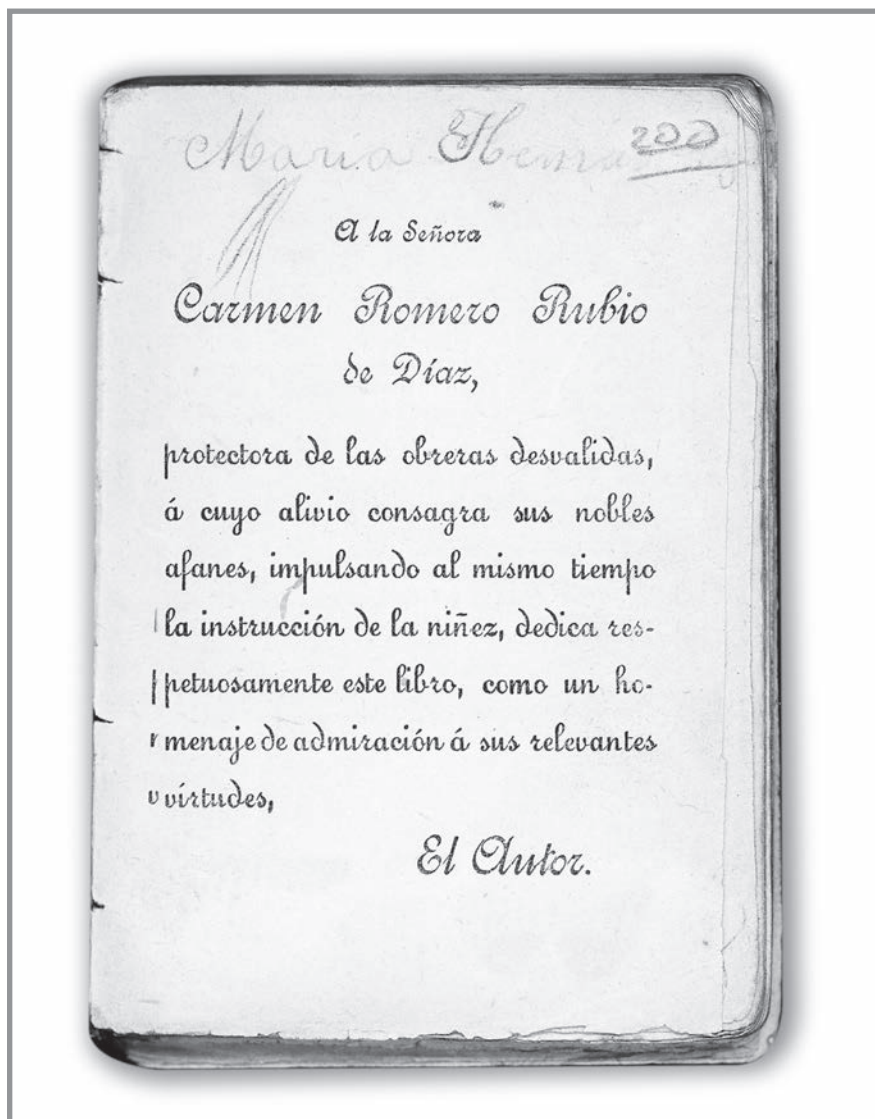 María
200
A la Señora
Carmen Romero Rubio
de Díaz,
protectora de las obreras desvalidas,
á cuyo alivio consagra sus nobles
afanes, impulsando al mismo tiempo
la instrucción de la niñez, dedica res-
petuosamente este libro, como un ho-
menaje de admiración á sus relevantes
virtudes,
El Autor.